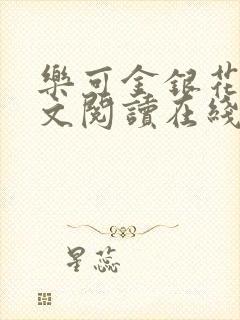 樂可金銀花
文閱讀在綫
星蕊